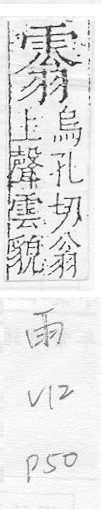 烏孔切翁
上聲雲貌
雨
V12
P50